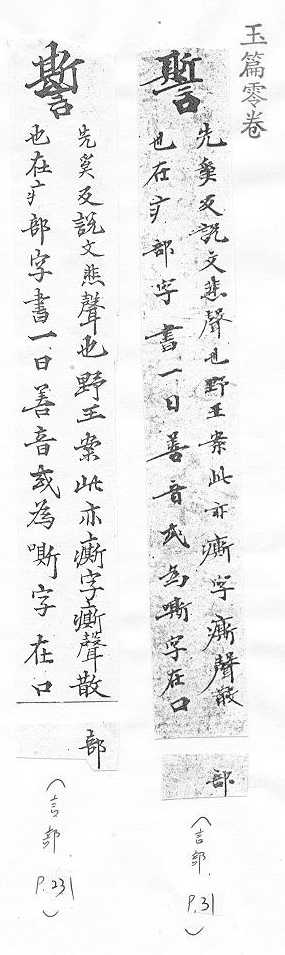 玉篇零卷
誓
先奚反說文悲聲也野王案此亦㾷字㾷聲散
也在疒部字書一曰善音或為嘶字在口
部
(言部
P.31)
先奚反說文悲聲也野王案此亦㾷字㾷聲散
也在疒部字書一曰善音或為嘶字在口
部
(言部
P.231)